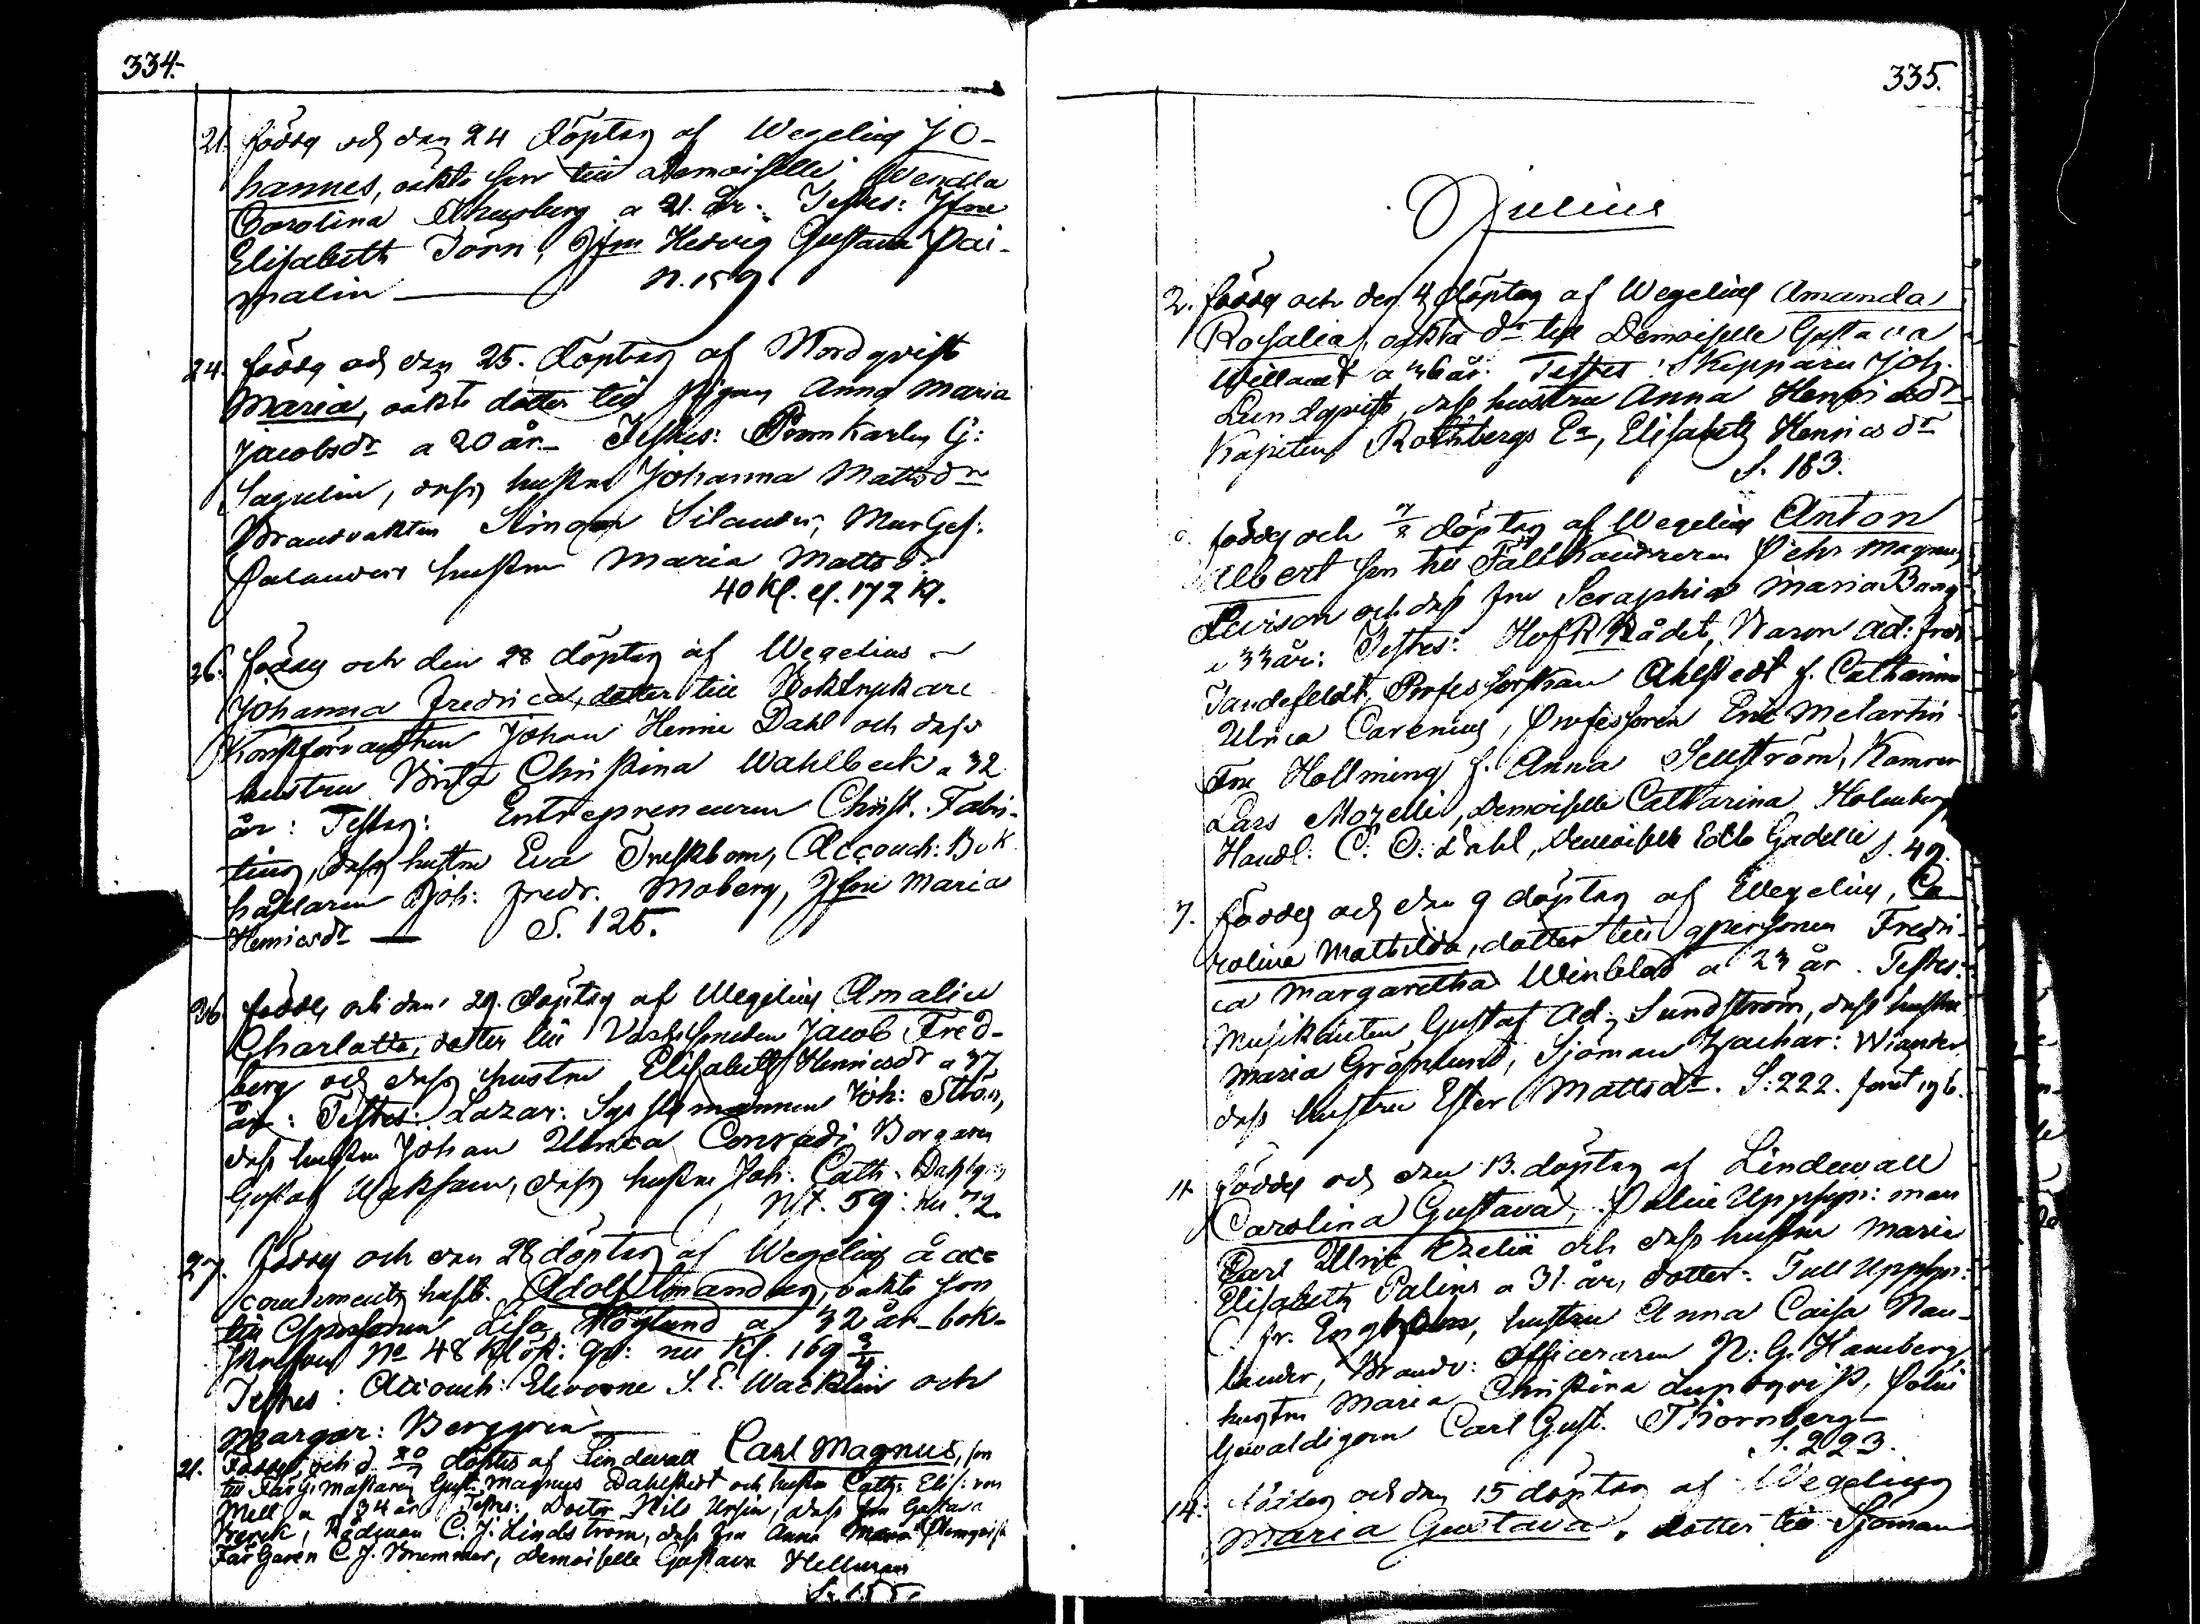 334.
21. föddes och den 24 döptes af Wegelius Jo-
hannes, oäkta son till Demoiselle Wendla
Carolina a 21. År. Testes: Jfru
Elisabeth Törn, Jfru Hedvig Gustava Pai-
malin — N. 159.
24. föddes och den 25. döptes af Nordqvist
Maria, oäkta dotter till pigan Anna Maria
Jacobsdr a 20 år — Testes: G:
Sagulin, dess hustru Johanna Mattsdr
Brandvakten Simon Silander, Mur Ges:
Palanders hustru Maria Mattsdr
40 Kl. el. 172 Kl.
26. föddes och den 28 döptes af Wegelius
Johanna Fredrica, dotter till Boktryckare
Konstförvandten Johan Henric Dahl och dess
hustru Brita Christina Wahlbeck a 32
år: Testes: Entrepreneuren Christ. Fabri-
tius, dess hustru Eva Friskbom, Accouch: Bok
hållaren Joh: Fredr. Moberg, Jfru Maria
Henricsdr — S. 125.
26 föddes och den 29. döptes af Wegelius Amalia
Charlotta, dotter till Jacob Fred-
berg och dess hustru Elisabeth Henricsdr a 37
år: Testes: Lazar: Sysslomannen Joh:
dess hustru Johan Ulrica Conradi, Borgaren
Gustaf dess hustru Joh. Cath.
Nt. 59: nu 72.
27. Föddes och den 28 döptes af Wegelius å acc
couchements huset. Adolf Amandus, oäkta son
till Qpersonen Lisa Höglund a 32 år – bok-
No 48 Klöst: qv: nu Kl. 169 3/4
Testes: Accouch: Eleverne S. E. Wacklin och
Margar: Berggren
21. Föddes och d. döptes af Lindewall Carl Magnus, son
till Färg: mästaren Gust. Magnus Dahlstedt och hustru Cath: Elis: von
Mell a 34 år Testes: Doctor Nils Ursin, dess fru Gustava
Rådman C. J. Lindström, dess fru Anna Maria
Färgaren C J. Brummer, Demoiselle Gustava
S. 155.
335.
Julius
2. föddes och den 4 döptes af Wegelius Amanda
Rosalia, oäkta dr till Demoiselle Gustava
a 36 år. Testes: Skepparen Joh.
Lundqvist, dess hustru Anna Henricsdr
Kapiten Rothbergs Ea, Elisabeth Henricsdr
S. 183.
föddes och döptes af Wegelius Anton
Albert son till Pehr Magnus
Levison och dess fru Seraphia Maria Bang
a 33 år: Testes: HofR Rådet, Baron Ad: Fredr
Professorskan Ahlstedt f. Catharina
Ulrica Carenius, Professoren Eric Melartin
Fru Hollming f. Anna Sellström, Kamrer
Lars Mozelli, Demoiselle Catharina Holmberg
Handl: C. O. Dahl, Demoiselle Edla Gadelli S. 49.
7. föddes och den 9 döptes af Wegelius, Ca
rolina Mathilda, dotter till qpersonen Fredri-
ca Margaretha Winblad a 23 år. Testes:
Musikanten Gustaf Ad: Sundström, dess hustru
Maria Grönlund, Sjöman Zachar: Wiander
dess hustru Ester Mattsdr. S: 222. förut 196.
11. föddes och den 13. döptes af Lindewall
Carolina Gustava, Police Uppsyn: man
Carl Ulric och dess hustru Maria
Elisabeth Palins a 31 år, dotter: Tull Uppsyn:
fr. hustru Anna Caisa Nau-
lander, Brandv: Officeraren N: G. Hamberg
hustru Maria Christina Lundqvist, Polis
Gevaldigern Carl Gust. Thornberg —
S. 223.
14. föddes och den 15 döptes af Wegelius
Maria Gustava, dotter till Sjöman